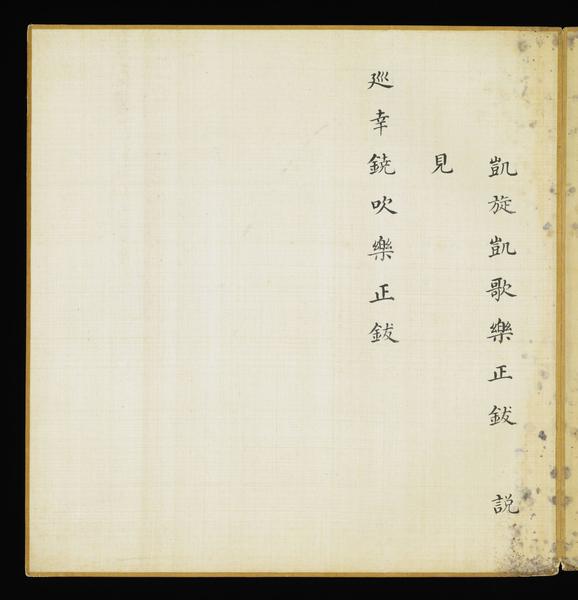 凱旋凱歌樂正鈸 說
見
巡幸鐃吹樂正鈸